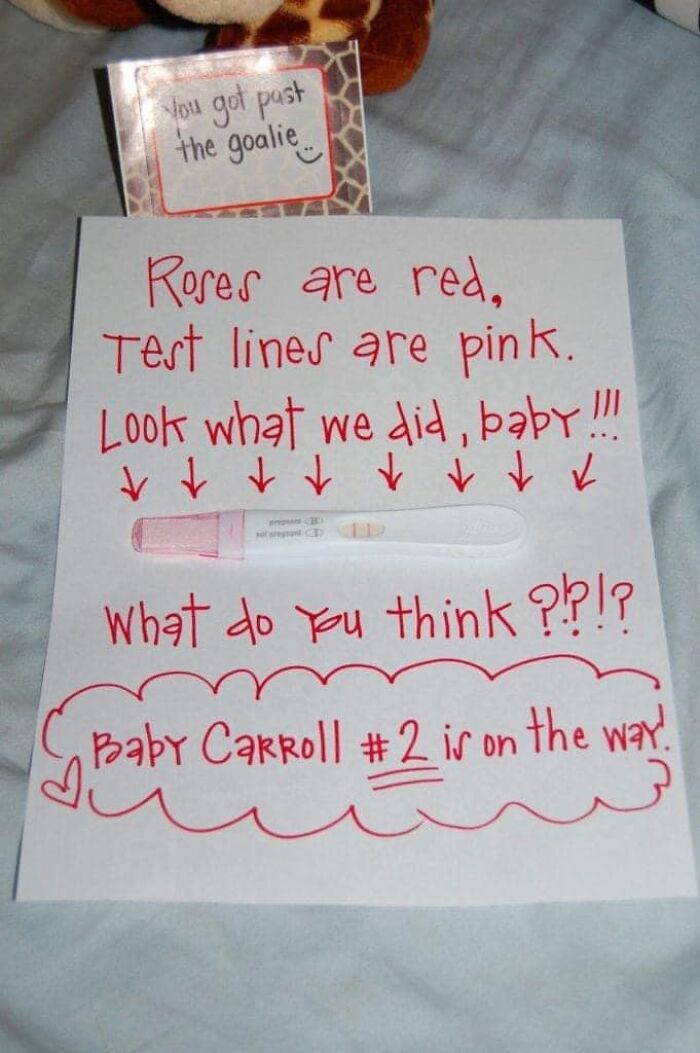 You got past
the goalie
Roses are red,
Test lines are pink.
Look what we did, baby!!!
pregnant
not pregnant
What do you think ??!?
Baby Carroll #2 is on the way!